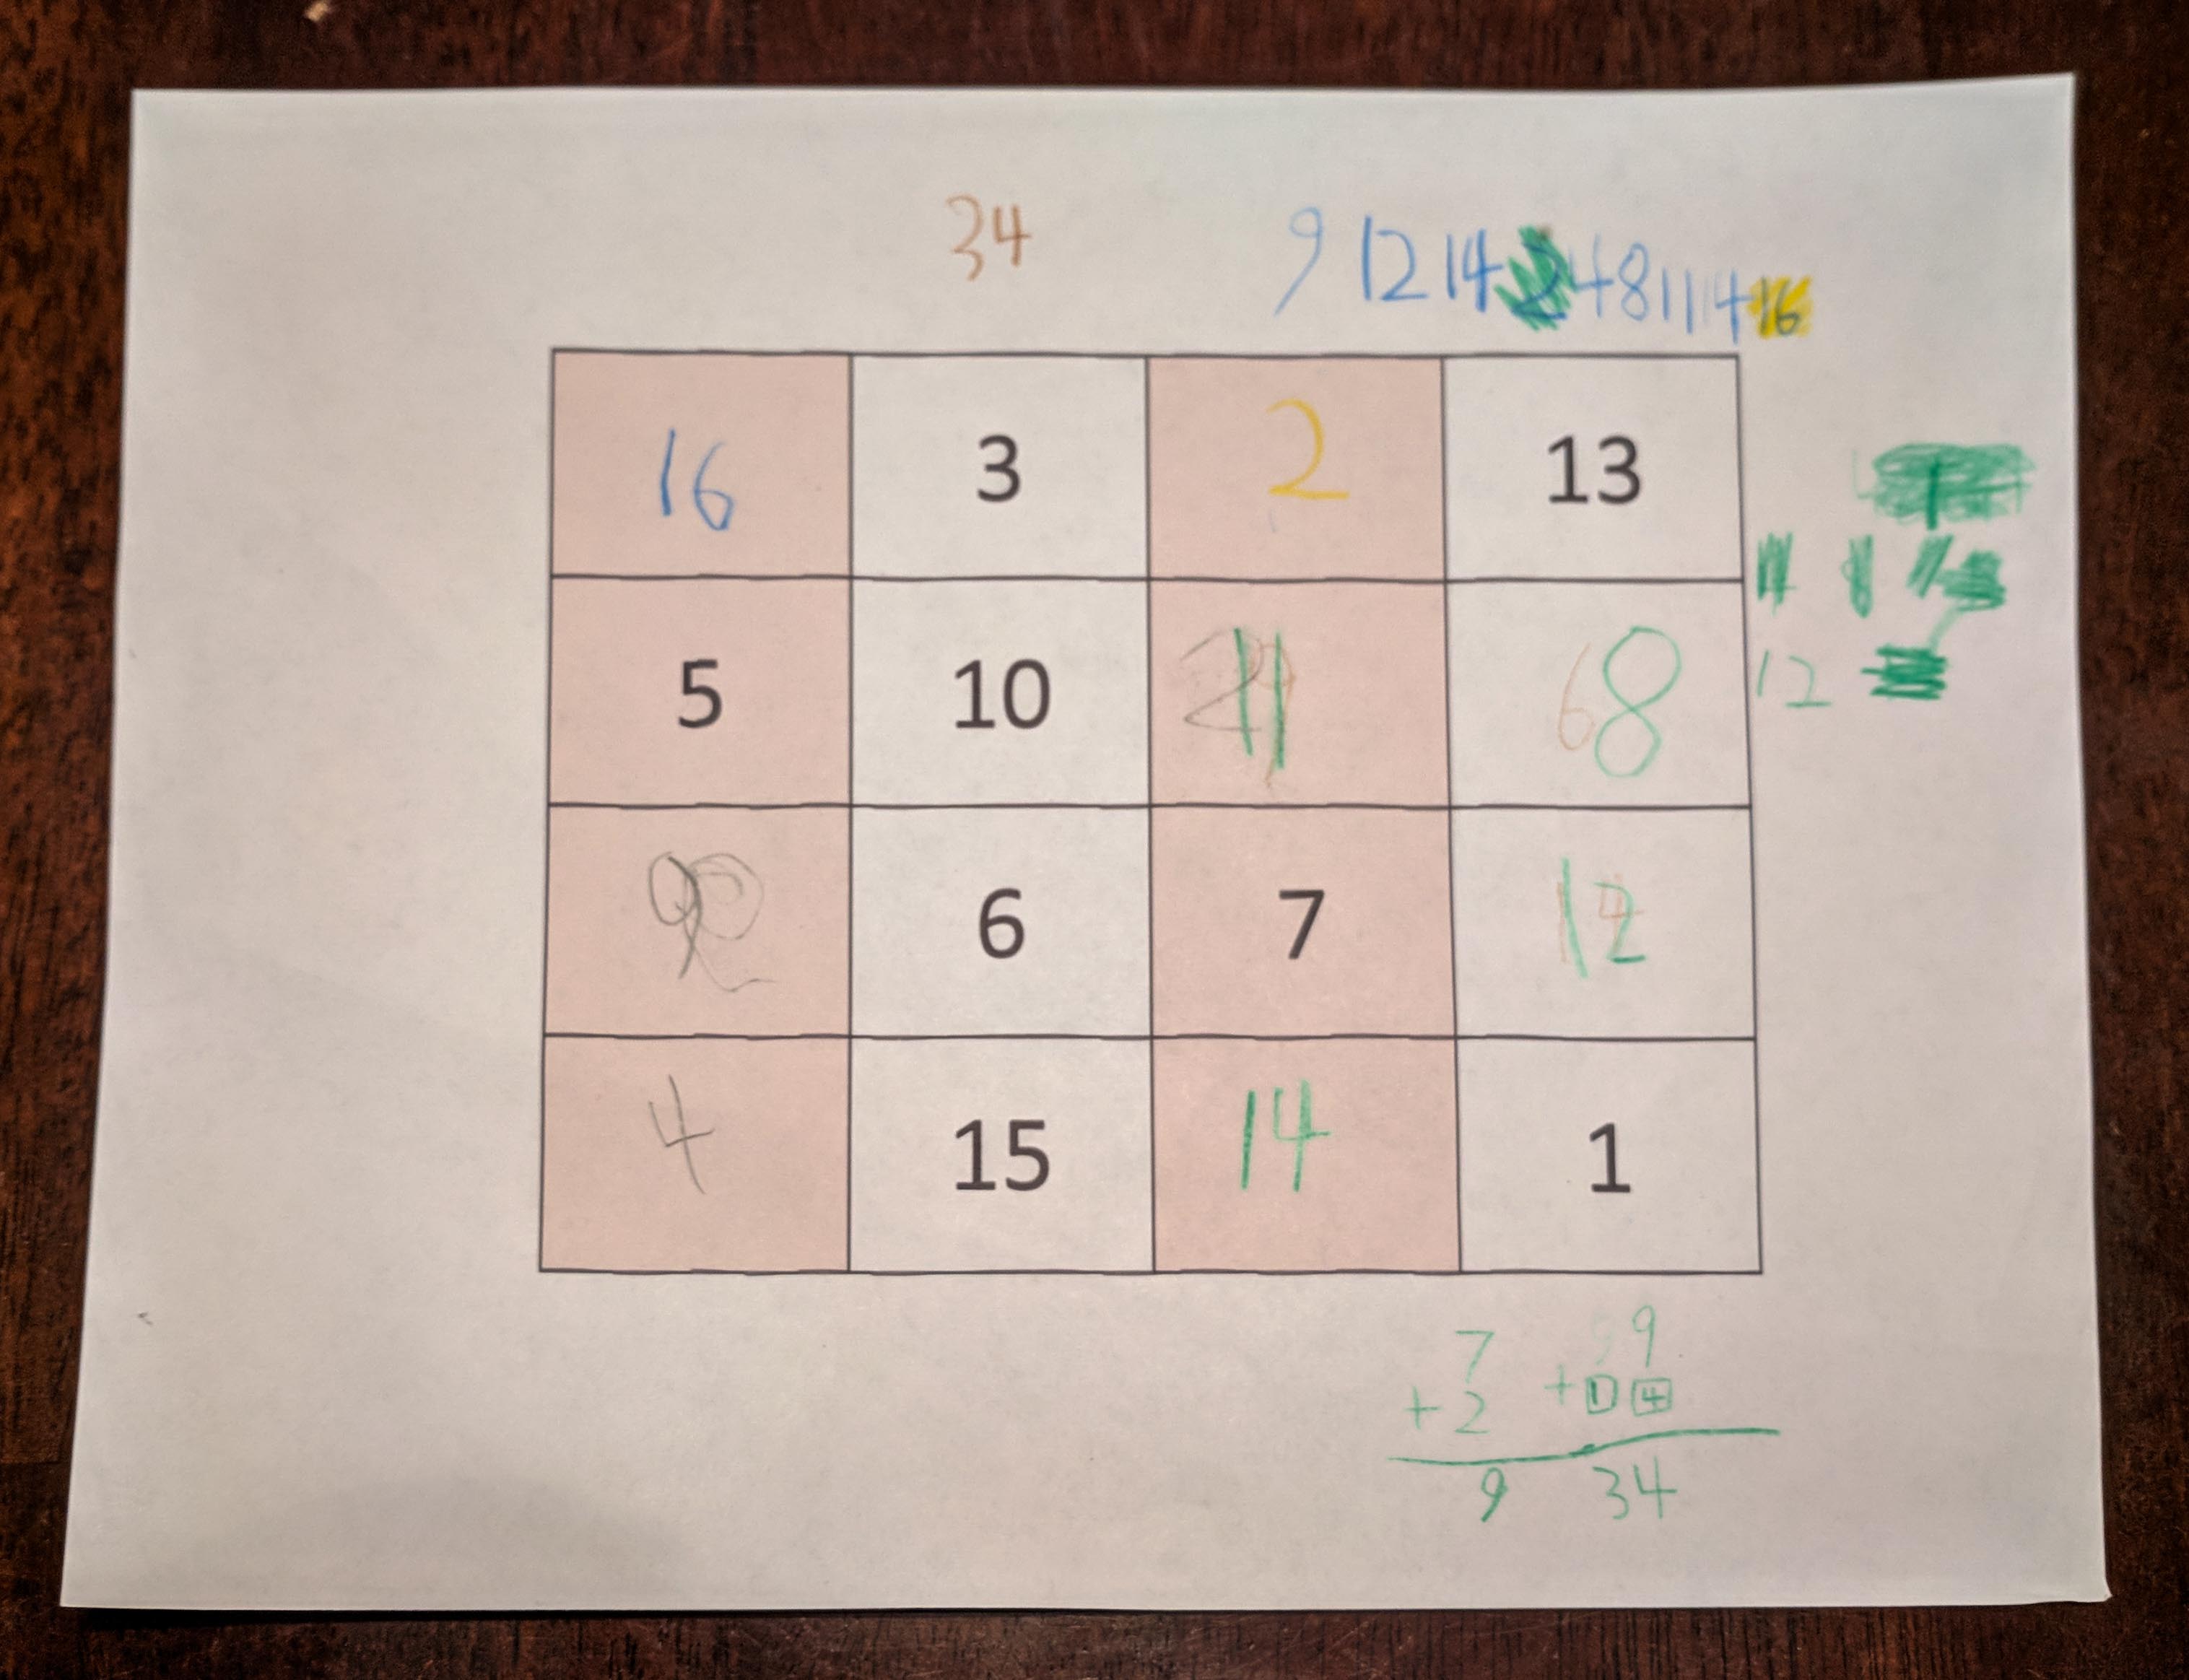 34
9 12 14 4 8 11 14 16
16 3 2 13
5 10 11 8
12
9 6 7 12
4 15 14 1
7 9
+ 2 + 1 4
9 34